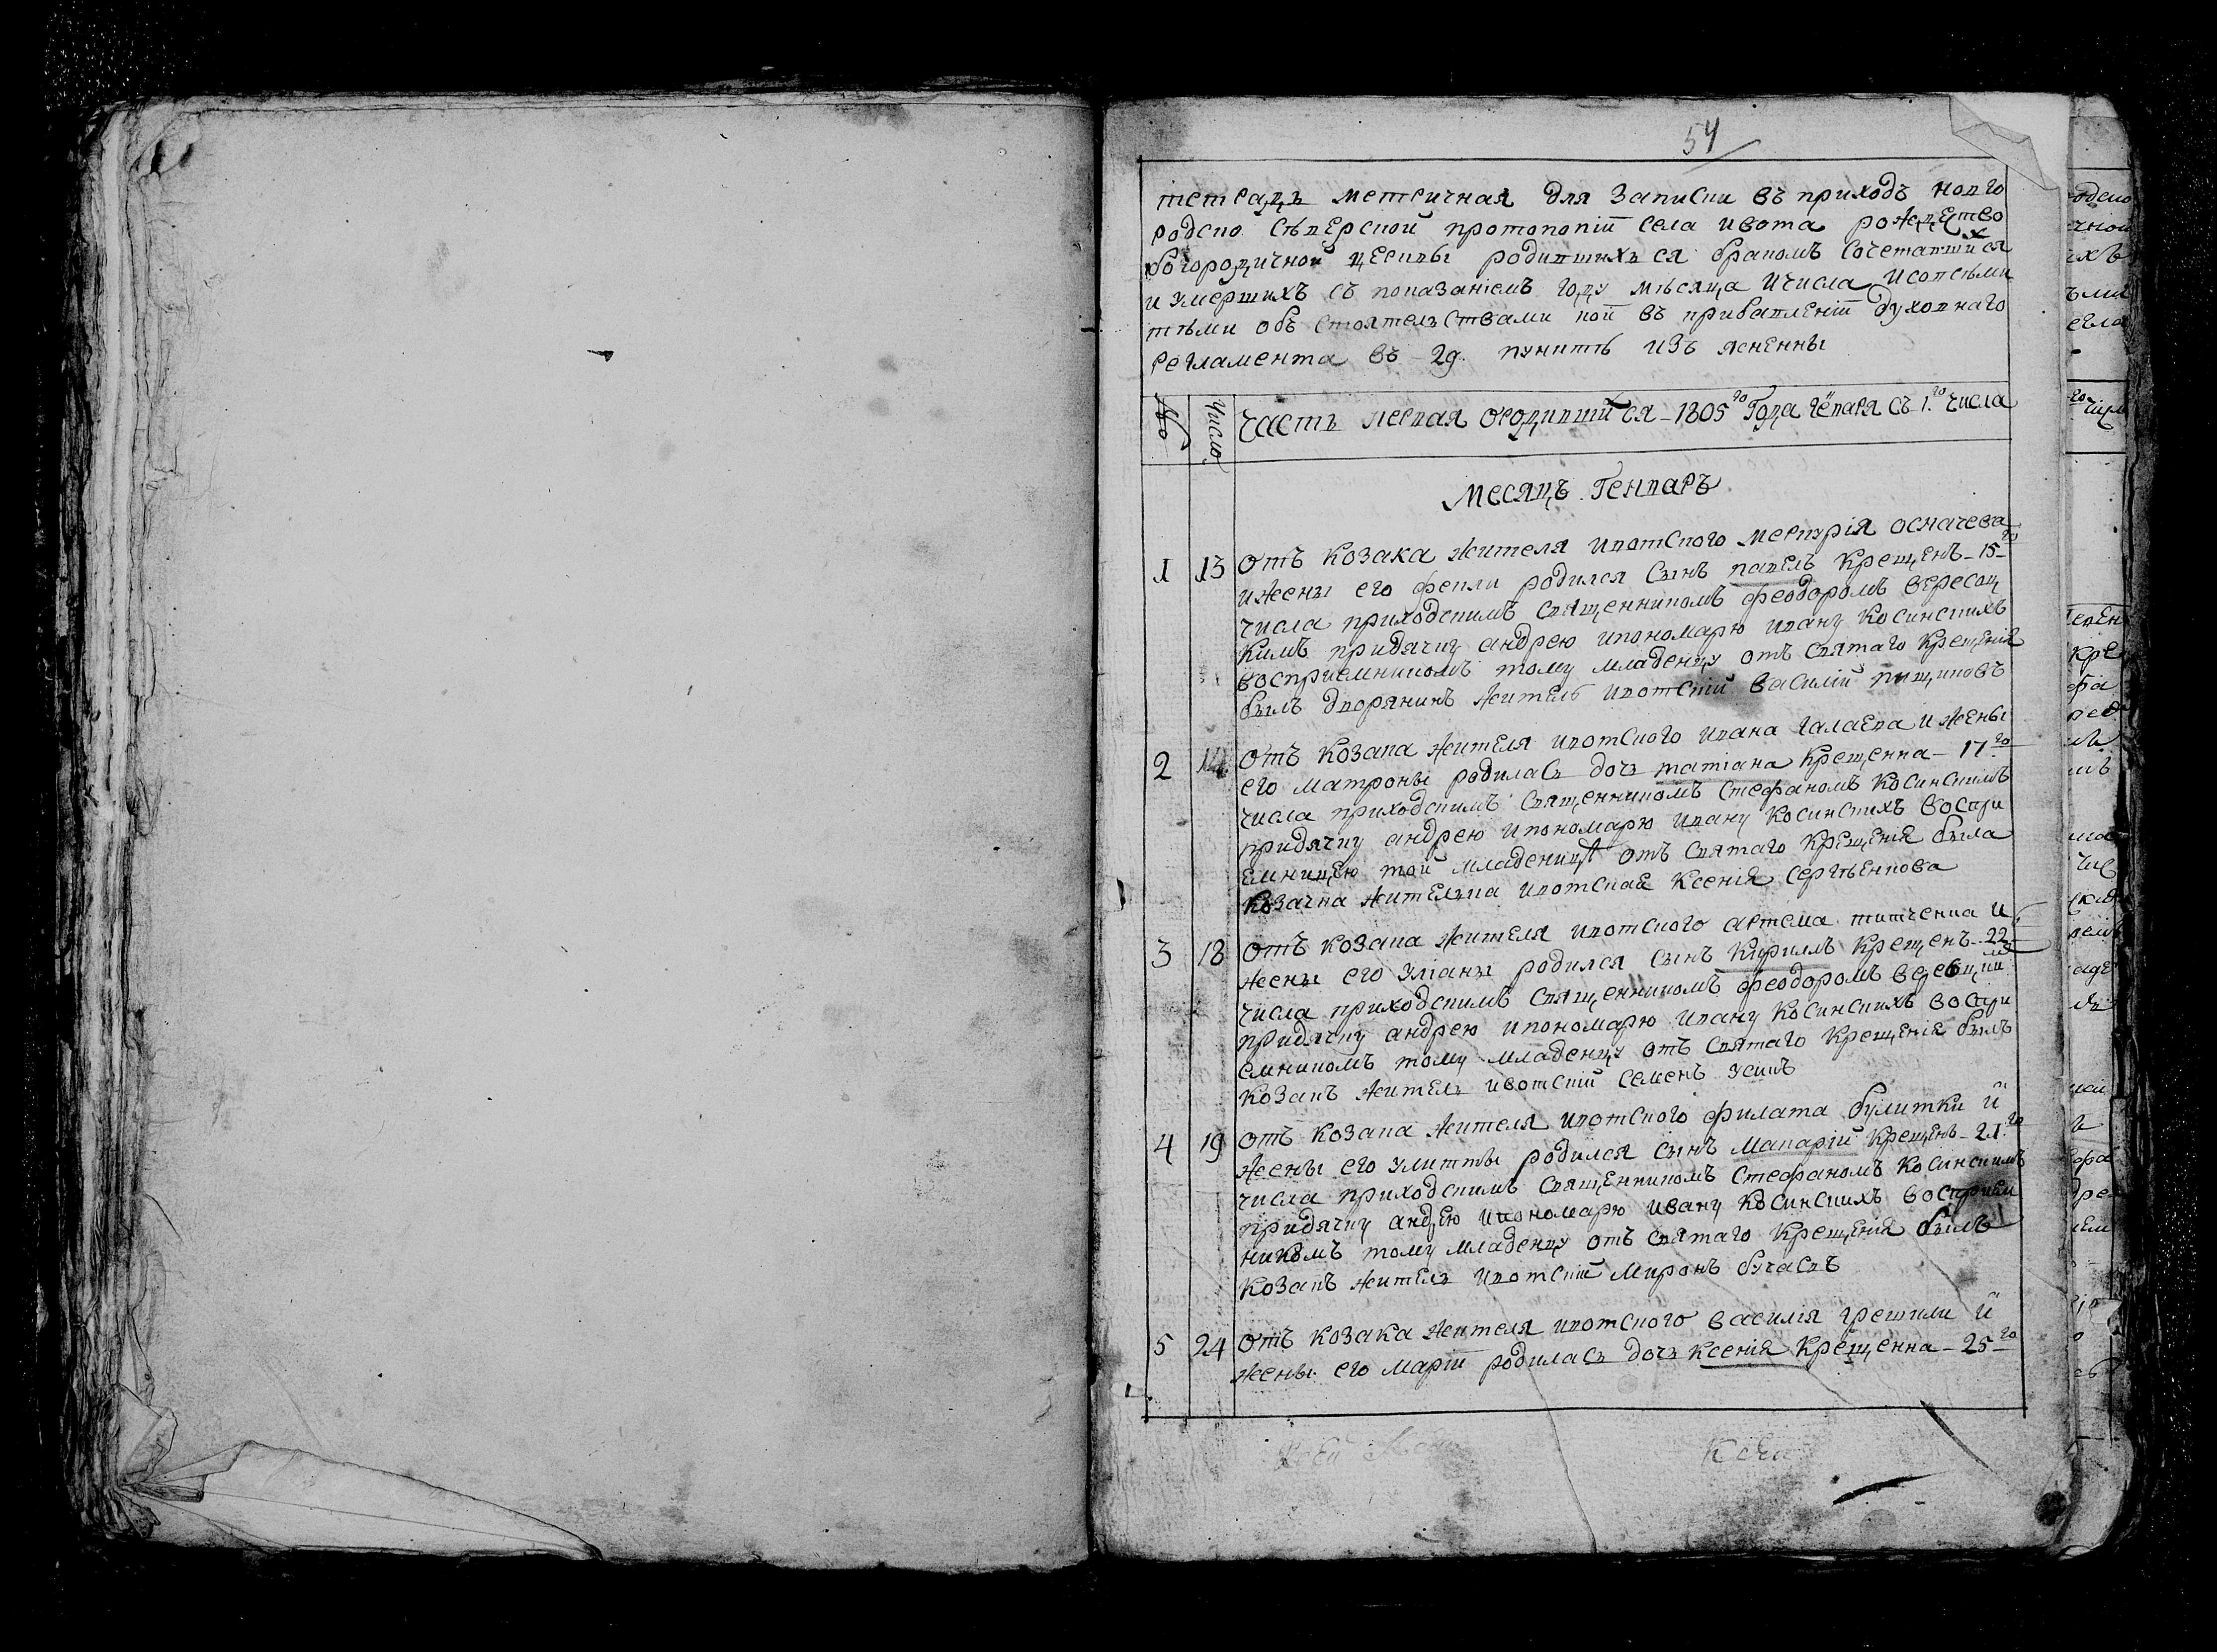 54
тетрадь метричная для записки въ приходъ новго
родско северской протопопіи села ивота рождество
богородичной церкви родившихъ ся бракомъ сочетавшихся
и умершихъ съ показаніемъ году месяца и числа и со всеми
теми обстоятельствами кои въ прибавленіи духовнаго
регламента въ 29. пункте изъясненны
№ Число Часть первая о родившихся - 1805го Года генваря съ 1.го числа
Месяцъ Генварь
1 13 Отъ козака жителя ивотского меркурія осмачева
и жены его феклы родился сынъ павелъ крещенъ - 15го
числа приходскимъ священникомъ феодоромъ вересоц
кимъ при дячку андрею и пономарю ивану косинскихъ
воспріемникомъ тому младенцу отъ святаго крещенія
былъ дворянинъ житель ивотскій василій пущиновъ
2 14 Отъ козака жителя ивотского ивана галаева и жены
его матроны родилась дочь татіана крещенна - 17го
числа приходскимъ священникомъ стефаномъ косинскимъ
при дячку андрею и пономарю ивану косинскихъ воспри
емницею той младеницы отъ святаго крещенія была
козачка жителька ивотская ксенія сергеенкова
3 18 Отъ козака жителя ивотского артема титченка и
жены его уліаны родился сынъ кирилъ крещенъ - 22
числа приходскимъ священникомъ феодоромъ
при дячку андрею и пономарю ивану косинскихъ воспри
емникомъ тому младенцу отъ святаго крещенія былъ
козакъ житель ивотскій семенъ усикъ
4 19 Отъ козака жителя ивотского филата булитки и
жены его улитты родился сынъ макарій крещенъ - 21го
числа приходскимъ священникомъ стефаномъ косинскимъ
при дячку андею и пономарю ивану косинскихъ восприем
никомъ тому младенцу отъ святаго крещенія былъ
козакъ житель ивотскій миронъ
5 24 Отъ козака жителя ивотского василія грешили и
жены его маріи родилась дочь ксенія крещенна - 25го